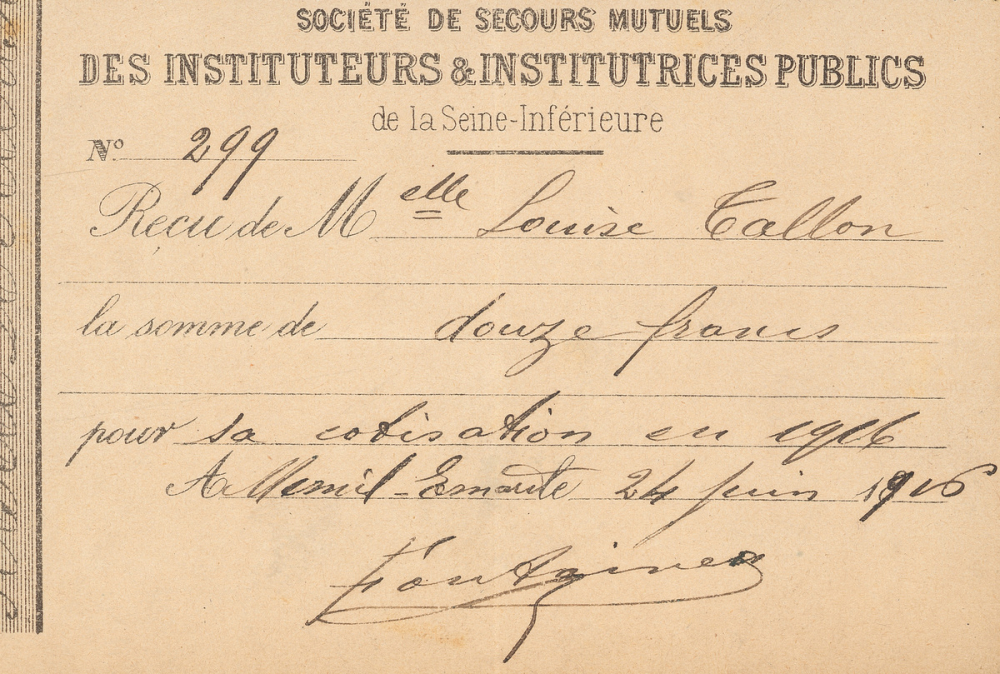 SOCIÉTÉ DE SECOURS MUTUELS
DES INSTITUTEURS & INSTITUTRICES PUBLICS
de la Seine-Inférieure
Nº 299
Reçu de Melle Louise Tallon
la somme de douze francs
pour sa cotisation en 1916
A Mesnil-Esnard le 24 juin 1916
Fontaine